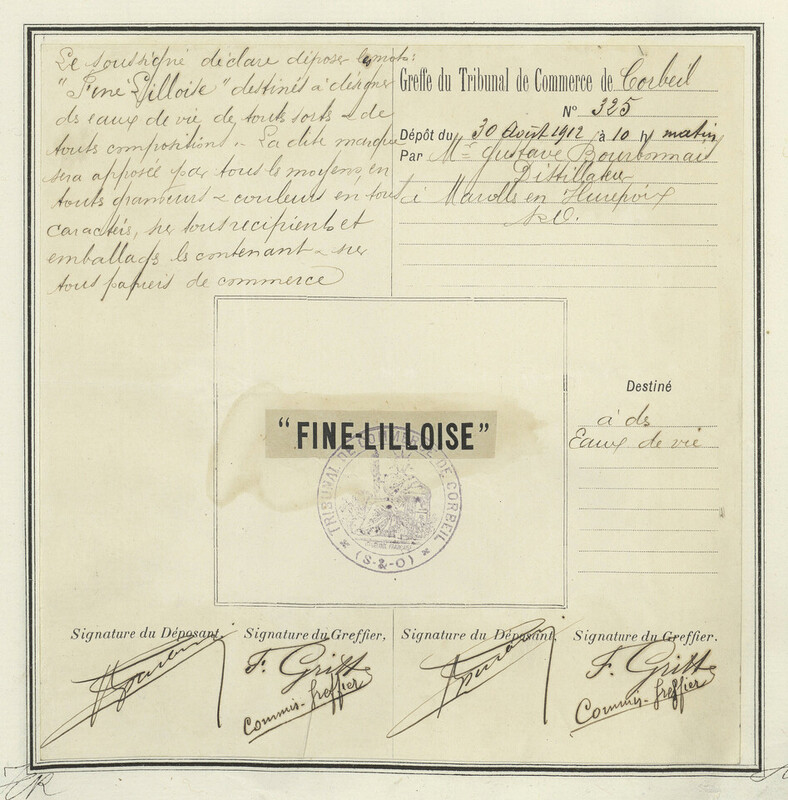 Le soussigné déclare déposer les mots:
"Fine Lilloise" destinés à désigner
ds eaux de vie de touts sorts & de
touts compositions. La dite marque
sera apposée par tous ls moyens, en
touts grandeurs & couleurs en tous
caractérs, sur tous récipients et
emballags ls contenant & sur
tous papiers de commerce
Greffe du Tribunal de Commerce de Corbeil
N° 325
Dépôt du 30 Août 1912 à 10 h matin
Par Mr Gustave Bourbonnais
Distillateur
à Marolls en Hurepoix
S&O.
"FINE-LILLOISE"
TRIBUNAL DE COMMERCE DE CORBEIL
(S-&-O)
Destiné
à ds
Eaux de vie
Signature du Déposant. Signature du Greffier, Signature du Déposant. Signature du Greffier.
F. Gritt F. Gritt
Commis-greffier Commis-greffier